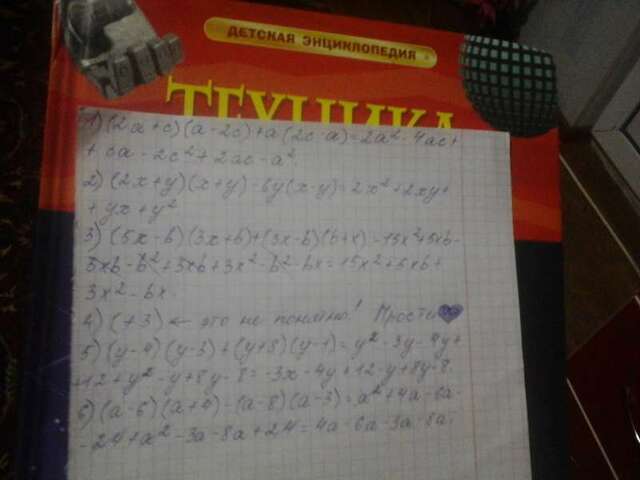 ДЕТСКАЯ ЭНЦИКЛОПЕДИЯ
ТЕХНИКА
1) (2a+c)(a-2c)+a(2c-a)=2a²-4ac+
+ca-2c²+2ac-a².
2) (2x+y)(x+y)-6y(x-y)=2x²+2xy+
+yx+y²
3) (5x-b)(3x+b)+(3x-b)(b+x)=15x²+5xb-
3xb-b²+3xb+3x²-b²-bx=15x²+5xb+
3x²-bx.
4) (+3) ← это не понятно! Прости
5) (y-4)(y-3)+(y+8)(y-1)=y²-3y-4y+
+12+y²-y+8y-8=-3x-4y+12-y+8y-8.
6) (a-6)(a+4)-(a-8)(a-3)=a²+4a-6a-
-24+a²-3a-8a+24=4a-6a-3a-8a.